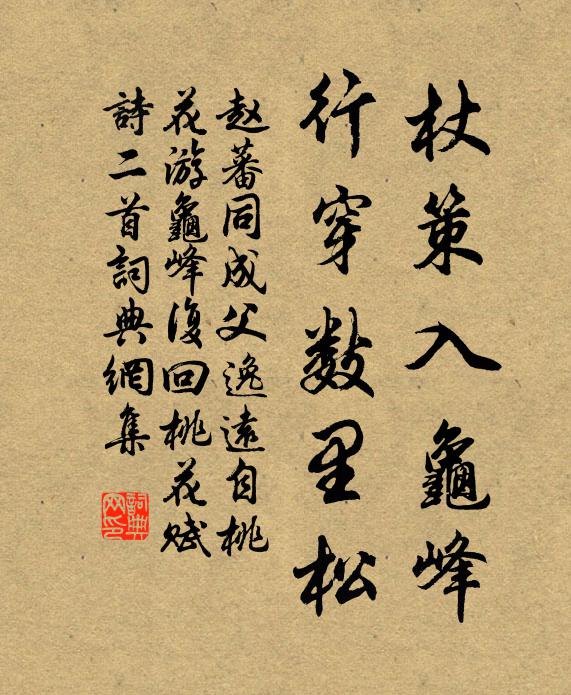 杖策入龜峰
行穿数里松
赵蕃同成父逸遠自桃
花游龜峰復回桃花赋
詩二首詞典網集
詞典网印